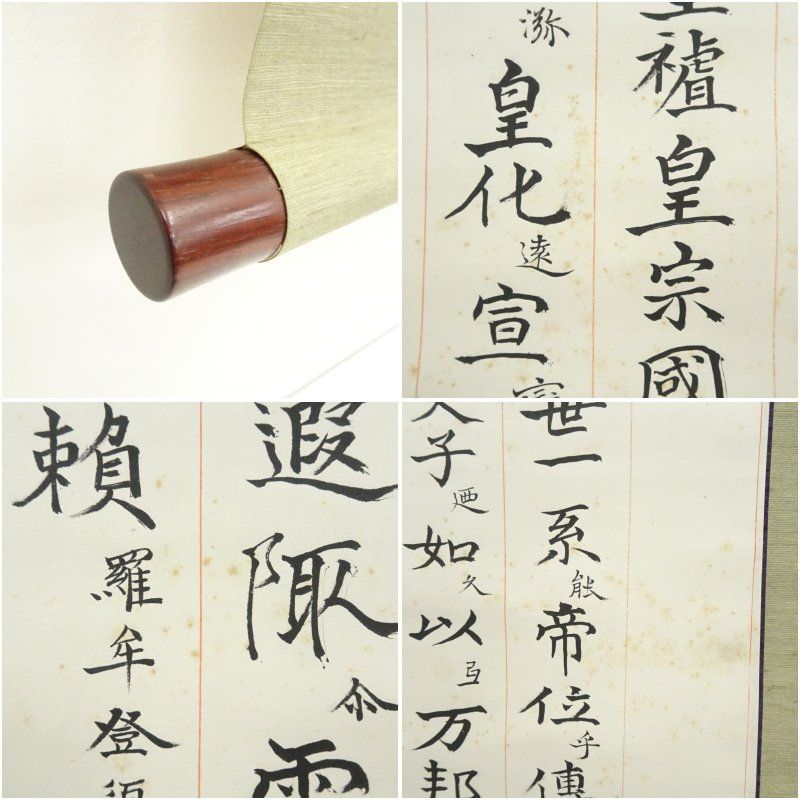 禃皇宗國
瀰皇化遠宣
遐陬尒雲
賴羅牟登須
世一系能帝位乎傳
天子迺如久以弖万邦